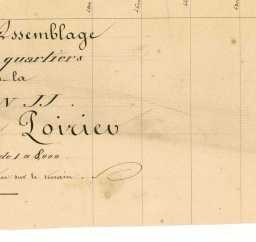 Assemblage
quartiers
la
N JJ.
Poirier
de 1 à 8000
sur le terrain